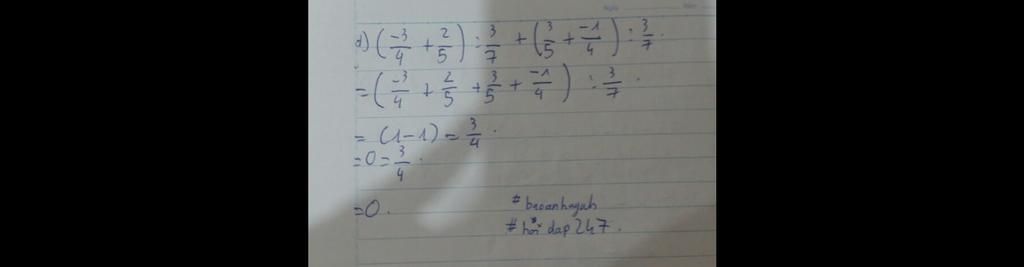 d) (-3/4 + 2/5) : 3/7 + (3/5 + -1/4) : 3/7.
= (-3/4 + 2/5 + 3/5 + -1/4) : 3/7.
= (1-1) = 3/4.
= 0 = 3/4.
= 0.
#baoanhnguh
#hỏi dap 247.